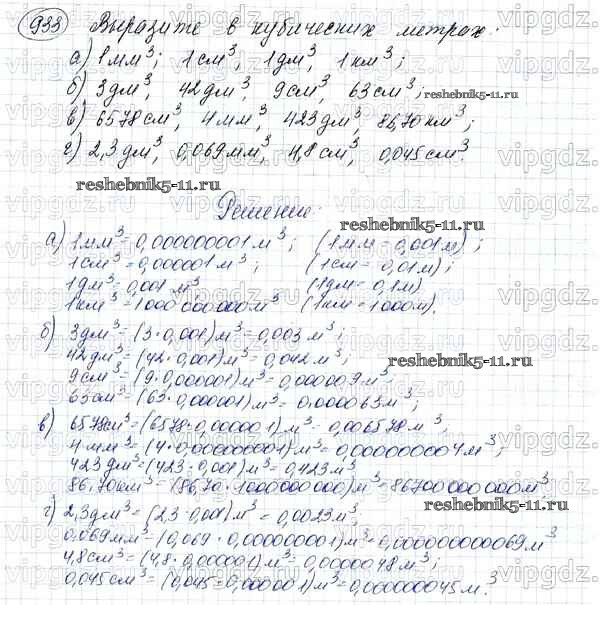 933 Выразите в кубических метрах:
а) 1 мм³; 1 см³, 1 дм³, 1 км³;
б) 3 дм³, 42 дм³, 9 см³, 63 см³; reshebnik5-11.ru
в) 6578 см³, 4 мм³, 423 дм³, 86,70 км³;
г) 2,3 дм³, 0,069 мм³, 4,8 см³, 0,045 см³.
reshebnik5-11.ru
Решение:
reshebnik5-11.ru
а) 1 мм³ = 0,000000001 м³; (1 мм = 0,001 м);
1 см³ = 0,000001 м³; (1 см = 0,01 м)
1 дм³ = 0,001 м³ (1 дм = 0,1 м)
1 км³ = 1000 000000 м³ (1 км = 1000 м).
б) 3 дм³ = (3 · 0,001) м³ = 0,003 м³;
42 дм³ = (42 · 0,001) м³ = 0,042 м³;
reshebnik5-11.ru
9 см³ = (9 · 0,000001) м³ = 0,000009 м³;
63 см³ = (63 · 0,000001) м³ = 0,000063 м³;
в) 6578 см³ = (6578 · 0,000001) м³ = 0,006578 м³;
4 мм³ = (4 · 0,000000001) м³ = 0,000000004 м³;
423 дм³ = (423 · 0,001) м³ = 0,423 м³
86,70 км³ = (86,70 · 1000000000) м³ = 86700 000 000 м³;
reshebnik5-11.ru
г) 2,3 дм³ = (2,3 · 0,001) м³ = 0,0023 м³;
0,069 мм³ = (0,069 · 0,000000001) м³ = 0,000000000069 м³
4,8 см³ = (4,8 · 0,000001) м³ = 0,0000048 м³;
0,045 см³ = (0,045 · 0,000001) м³ = 0,000000045 м³.
vipgdz.ru